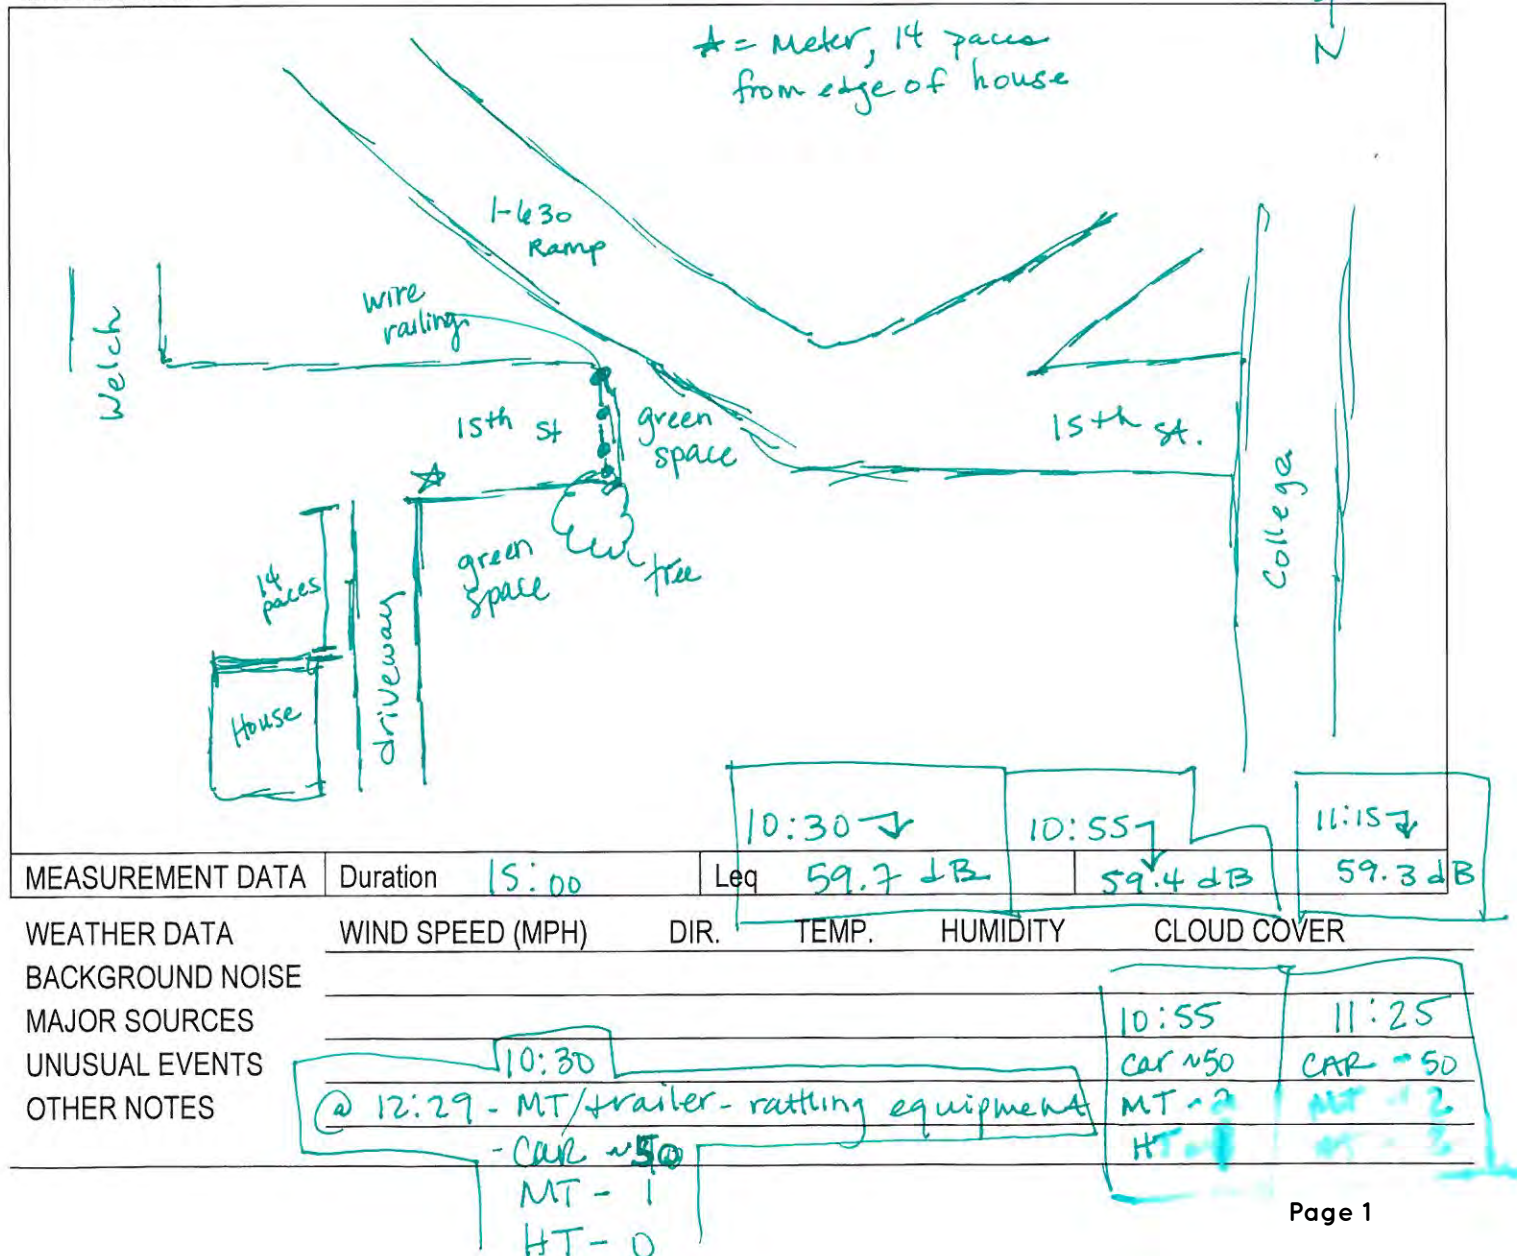 N
★ = Meter, 14 paces
from edge of house
I-630
Ramp
wire
railing
Welch
15th St
green
space
15th St.
College
green
space
tree
14
paces
driveway
House
10:30
10:55
11:15
MEASUREMENT DATA Duration 15:00 Leq 59.7 dB 59.4 dB 59.3 dB
WEATHER DATA WIND SPEED (MPH) DIR. TEMP. HUMIDITY CLOUD COVER
BACKGROUND NOISE
MAJOR SOURCES 10:55 11:25
UNUSUAL EVENTS 10:30 car ~50 CAR ~ 50
OTHER NOTES @ 12:29 - MT/trailer - rattling equipment MT - 2 MT 2
- CAR ~50 HT
MT - 1
HT - 0
Page 1